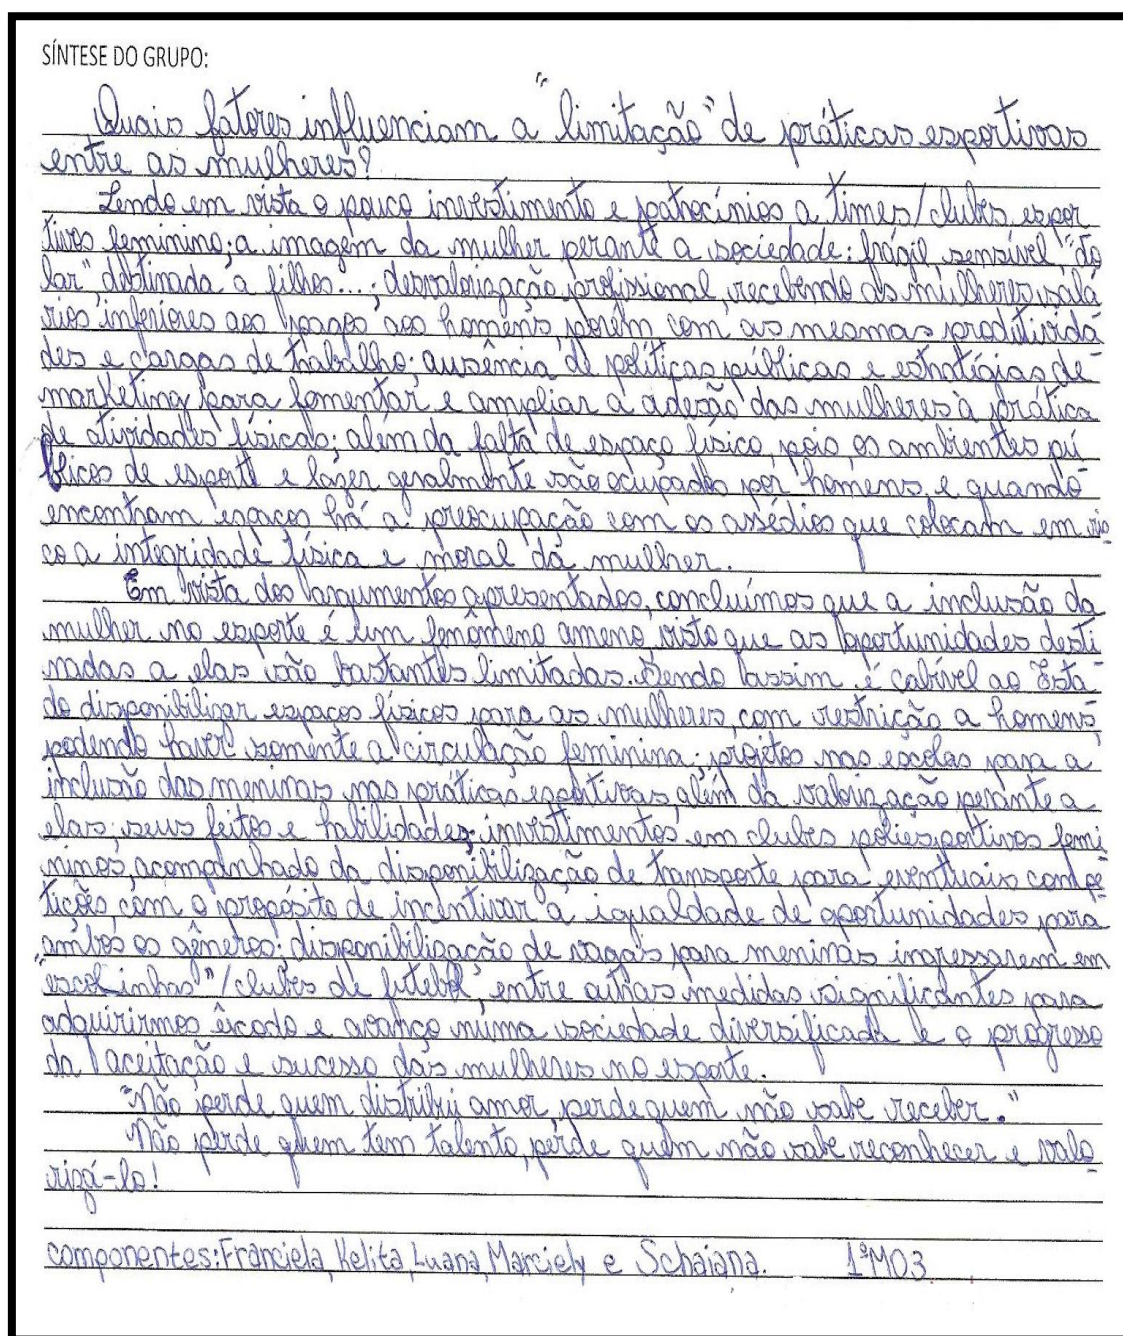 SÍNTESE DO GRUPO:
Quais fatores influenciam a "limitação" de práticas esportivas
entre as mulheres?
Tendo em vista o pouco investimento e patrocínios a times/clubes espor
tivos feminino; a imagem da mulher perante a sociedade: frágil, sensível "do
lar" destinada a filhos...; desvalorização profissional, recebendo as mulheres salá
rios inferiores aos pagos aos homens porém com as mesmas produtividá
des e cargas de trabalho; ausência de políticas públicas e estratégias de
marketing para fomentar e ampliar a adesão das mulheres à prática
de atividades físicas; além da falta de espaço físico, pois os ambientes pú
blicos de esporte e lazer geralmente são ocupados por homens, e quando
encontram espaços há a preocupação com os assédios que colocam em ris
co a integridade física e moral da mulher.
Em vista dos argumentos apresentados, concluímos que a inclusão da
mulher no esporte é um fenômeno ameno, visto que as oportunidades desti
nadas a elas são bastantes limitadas. Sendo assim, é cabível ao Esta
do disponibilizar espaços físicos para as mulheres, com restrição a homens
podendo haver somente a circulação feminina; projetos nas escolas para a
inclusão das meninas nas práticas esportivas, além da valorização perante a
elas, seus feitos e habilidades; investimentos em clubes poliesportivos femi
ninos, acompanhado da disponibilização de transporte para eventuais compe
tições, com o propósito de incentivar a igualdade de oportunidades para
ambos os gêneros; disponibilização de vagas para meninas ingressarem em
"escolinhas"/clubes de futebol, entre outras medidas significantes para
adquirirmos êxodo e avanço numa sociedade diversificada e o progresso
da aceitação e sucesso das mulheres no esporte.
"Não perde quem distribui amor, perde quem não sabe receber."
Não perde quem tem talento, perde quem não sabe reconhecer e valo
rizá-lo!
componentes: Franciela, Kelita, Luana, Marciely e Schaiana. 1ºM03